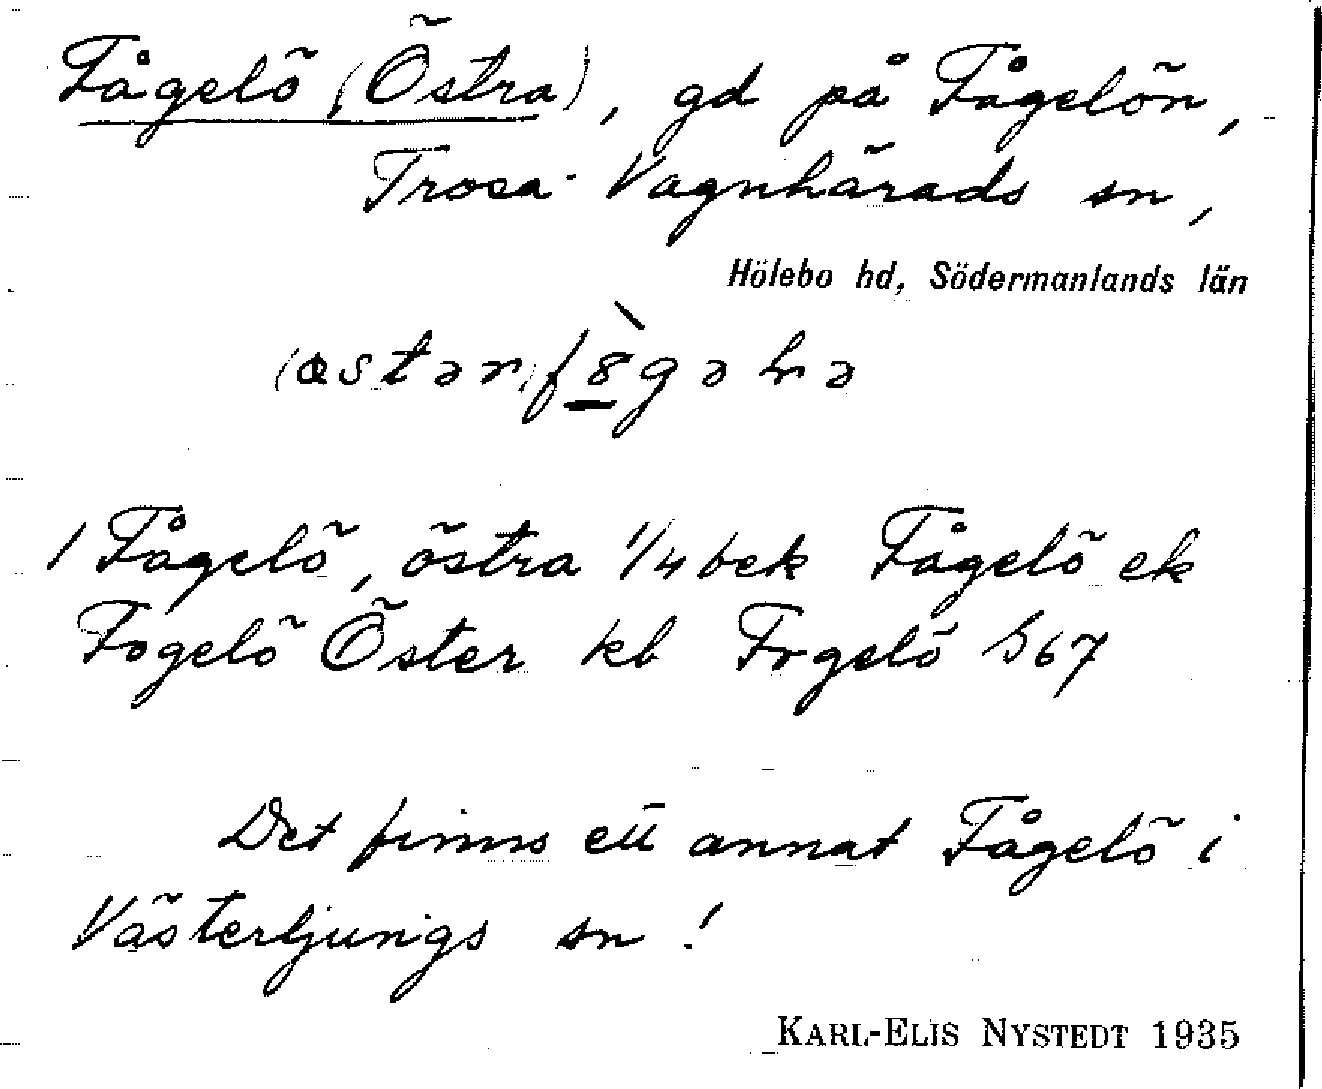 Fågelö (Östra), gd på Fågelön,
Trosa-Vagnhärads sn,
Hölebo hd, Södermanlands län
1 Fågelö, östra 1/4 bek Fågelö ek
Fogelö Öster kb Fogelö 567
Det finns ett annat Fågelö i
Västerljungs sn!
KARL-ELIS NYSTEDT 1935